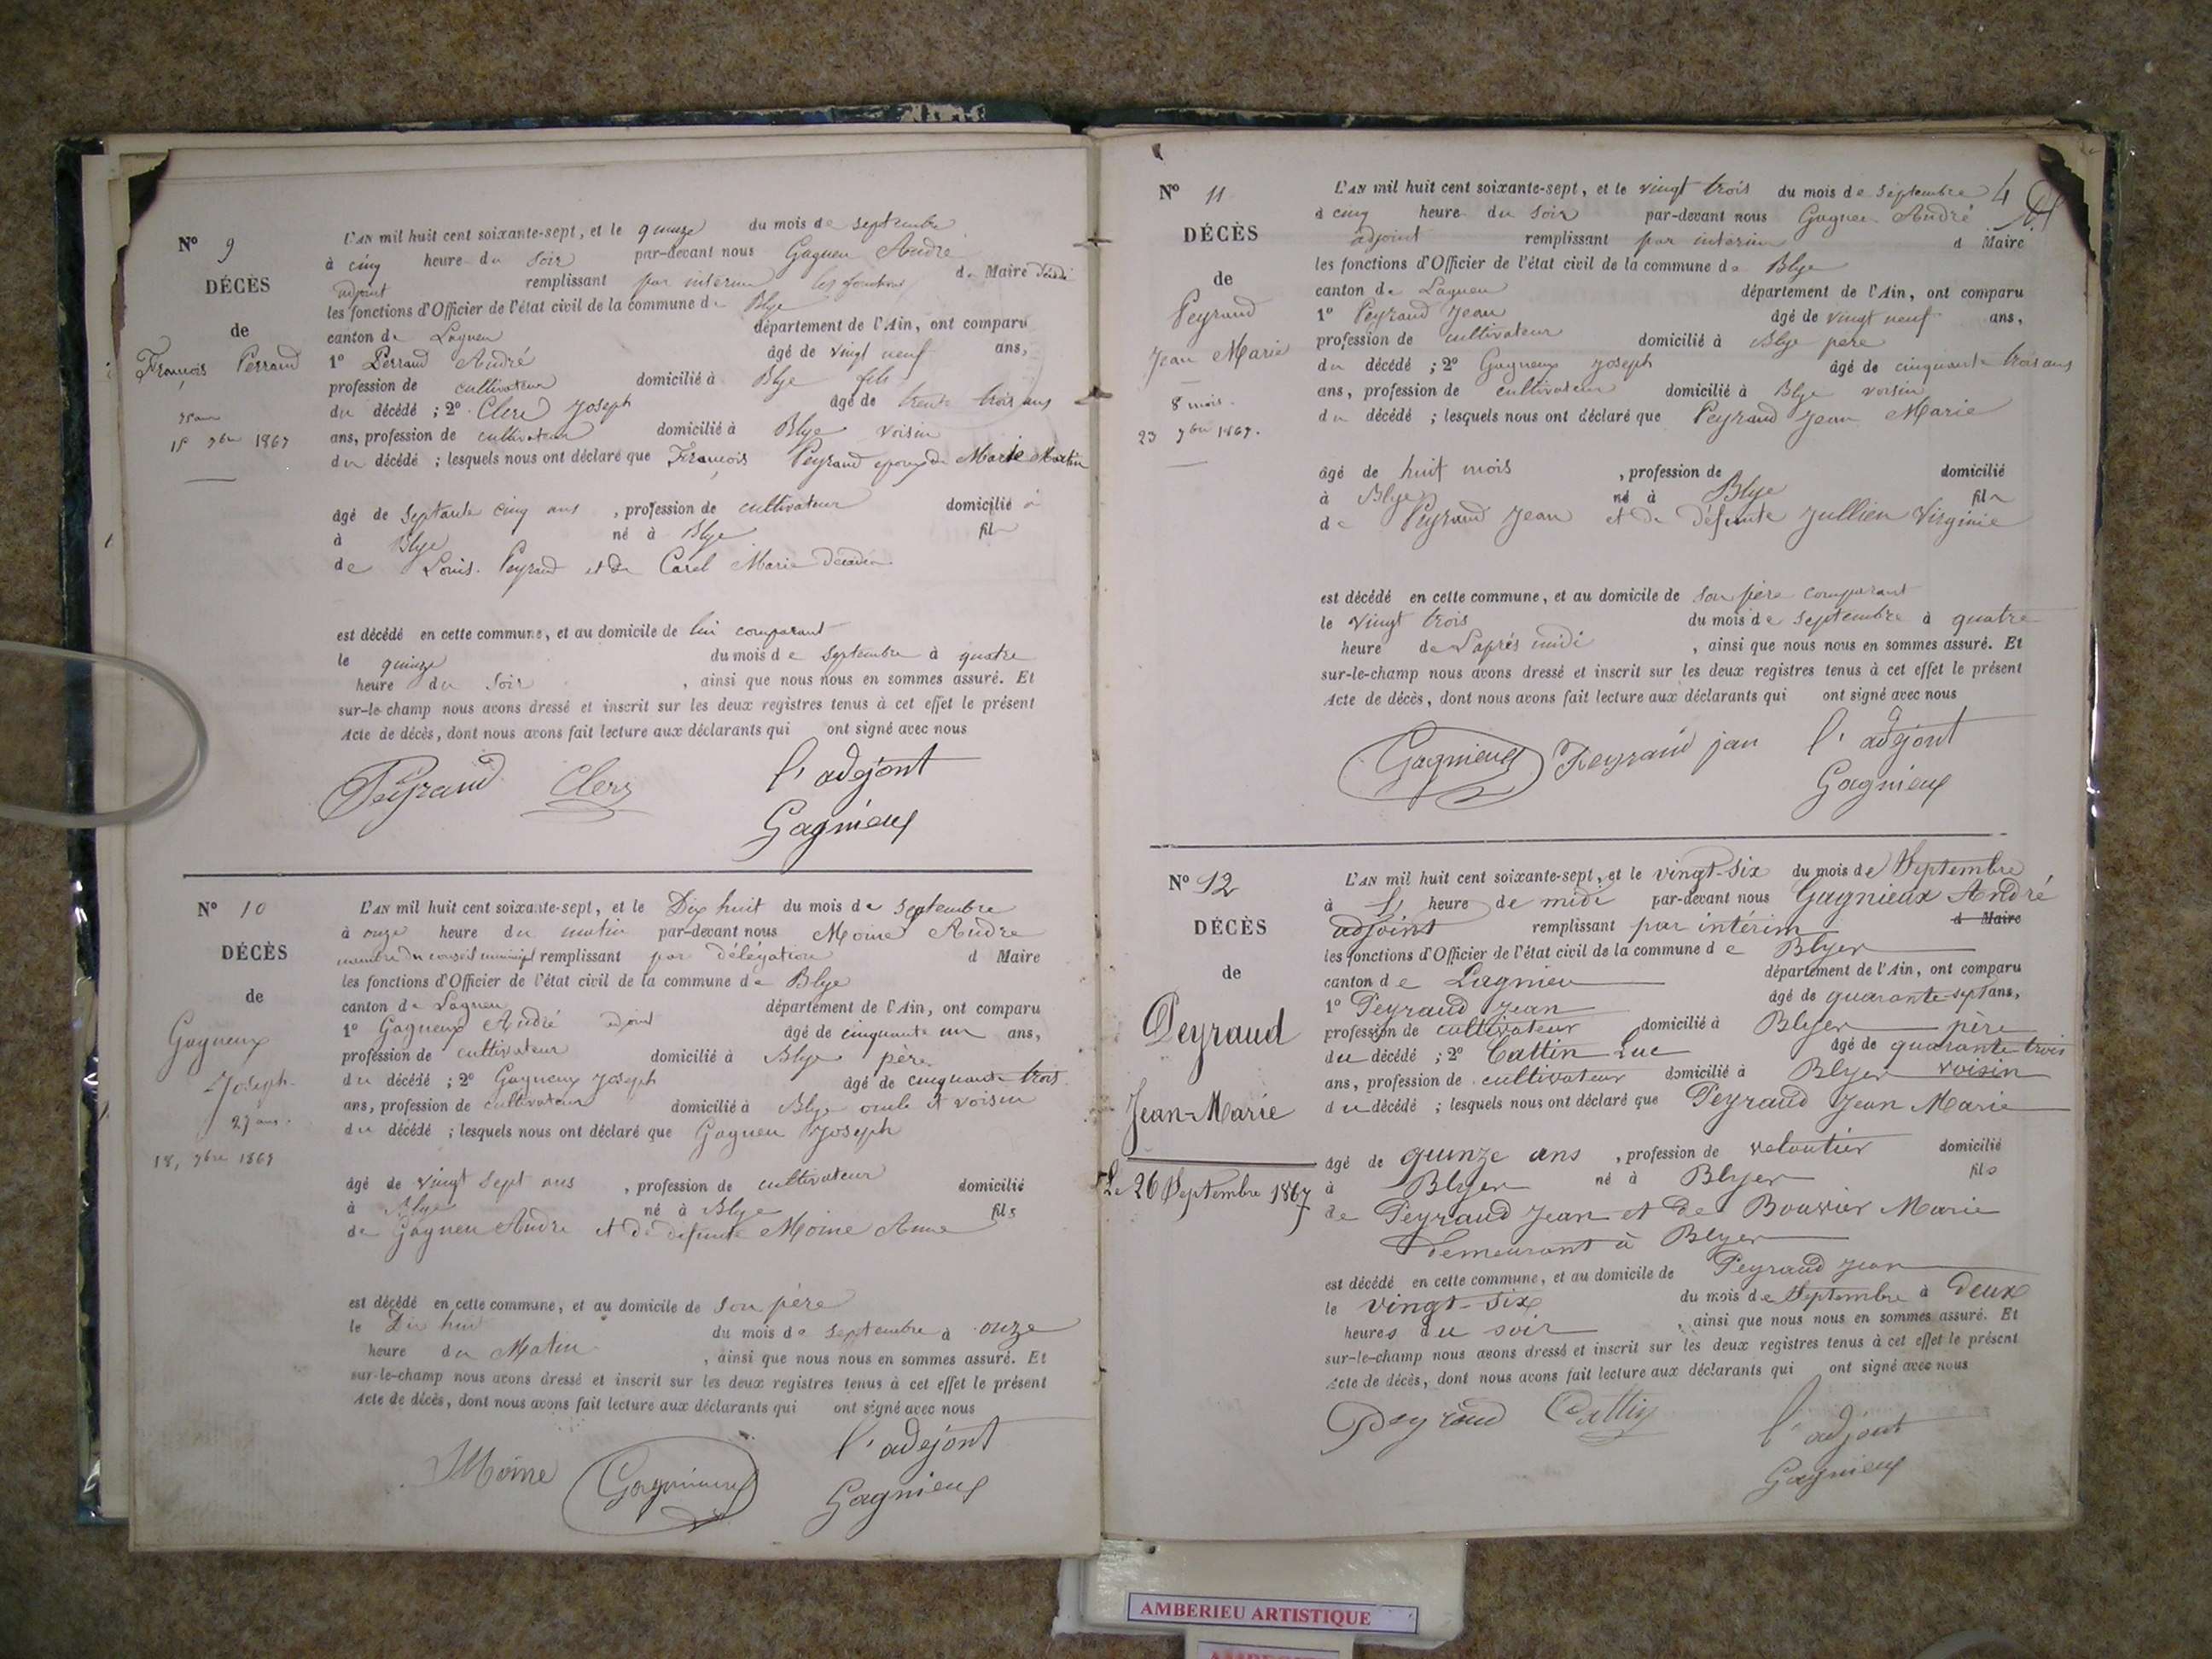 N° 9
DÉCÈS
de
François Perraud
15 9bre 1867
L'AN mil huit cent soixante-sept, et le quinze du mois de septembre
à cinq heure du soir par-devant nous Gagneu André
adjoint remplissant par interim les fonctions de Maire
les fonctions d'Officier de l'état civil de la commune de Blye
canton de Lagneu département de l'Ain, ont comparu
1° Perraud André âgé de vingt neuf ans,
profession de cultivateur domicilié à Blye fils
du décédé ; 2° Clerc Joseph âgé de trente trois ans
ans, profession de cultivateur domicilié à Blye voisin
du décédé ; lesquels nous ont déclaré que François Peyraud epoux de Marie Martin
âgé de septante cinq ans , profession de cultivateur domicilié à
à Blye né à Blye fils
de Louis Peyraud et de Carel Marie
est décédé en cette commune, et au domicile de lui comparant
le quinze du mois de septembre à quatre
heure du soir , ainsi que nous nous en sommes assuré. Et
sur-le-champ nous avons dressé et inscrit sur les deux registres tenus à cet effet le présent
Acte de décès, dont nous avons fait lecture aux déclarants qui ont signé avec nous
Peyraud Clerc l'adejont
Gagnieux
N° 10
DÉCÈS
de
Gagneux
Joseph
27 ans.
18, 9bre 1867
L'AN mil huit cent soixante-sept, et le Dix huit du mois de septembre
à onze heure du matin par-devant nous Moine André
membre du conseil municipal remplissant par délégation d Maire
les fonctions d'Officier de l'état civil de la commune de Blye
canton de Lagneu département de l'Ain, ont comparu
1° Gagneux André adjoint âgé de cinquante un ans,
profession de cultivateur domicilié à Blye père
du décédé ; 2° Gagneux Joseph âgé de cinquante trois
ans, profession de cultivateur domicilié à Blye oncle et voisin
du décédé ; lesquels nous ont déclaré que Gagneu Joseph
âgé de vingt sept ans , profession de cultivateur domicilié
à Blye né à Blye fils
de Gagneu André et de défunte Moine Anne
est décédé en cette commune, et au domicile de son père
le Dix huit du mois de septembre à onze
heure du Matin , ainsi que nous nous en sommes assuré. Et
sur-le-champ nous avons dressé et inscrit sur les deux registres tenus à cet effet le présent
Acte de décès, dont nous avons fait lecture aux déclarants qui ont signé avec nous
Moine Gagnieux l'adejont
Gagnieux
4
N° 11
DÉCÈS
de
Peyraud
Jean Marie
8 mois
23 9bre 1867.
L'AN mil huit cent soixante-sept, et le vingt trois du mois de septembre
à cinq heure du soir par-devant nous Gagneu André
adjoint remplissant par interim d Maire
les fonctions d'Officier de l'état civil de la commune de Blye
canton de Lagneu département de l'Ain, ont comparu
1° Peyraud Jean âgé de vingt neuf ans,
profession de cultivateur domicilié à Blye père
du décédé ; 2° Gagneux Joseph âgé de cinquante trois ans
ans, profession de cultivateur domicilié à Blye voisin
du décédé ; lesquels nous ont déclaré que Peyraud Jean Marie
âgé de huit mois , profession de domicilié
à Blye né à Blye fils
de Peyraud Jean et de défunte Jullien Virginie
est décédé en cette commune, et au domicile de son père comparant
le vingt trois du mois de septembre à quatre
heure de l'après midi , ainsi que nous nous en sommes assuré. Et
sur-le-champ nous avons dressé et inscrit sur les deux registres tenus à cet effet le présent
Acte de décès, dont nous avons fait lecture aux déclarants qui ont signé avec nous
Gagnieux Peyraud jan l'adejont
Gagnieux
N° 12
DÉCÈS
de
Peyraud
Jean-Marie
Le 26 Septembre 1867
L'AN mil huit cent soixante-sept, et le vingt-six du mois de Septembre
à heure de midi par-devant nous Gagnieux André
adjoint remplissant par intérim d Maire
les fonctions d'Officier de l'état civil de la commune de Blyes
canton de Lagnieu département de l'Ain, ont comparu
1° Peyraud Jean âgé de quarante-sept ans,
profession de cultivateur domicilié à Blyes père
du décédé ; 2° Cattin Luc âgé de quarante-trois
ans, profession de cultivateur domicilié à Blyes voisin
du décédé ; lesquels nous ont déclaré que Peyraud Jean Marie
âgé de quinze ans , profession de veloutier domicilié
à Blyes né à Blyes fils
de Peyraud Jean et de Bouvier Marie
demeurant à Blyes
est décédé en cette commune, et au domicile de Peyraud Jean
le vingt-six du mois de Septembre à deux
heures du soir , ainsi que nous nous en sommes assuré. Et
sur-le-champ nous avons dressé et inscrit sur les deux registres tenus à cet effet le présent
Acte de décès, dont nous avons fait lecture aux déclarants qui ont signé avec nous
Peyraud Cattin l'adjont
Gagnieux
AMBERIEU ARTISTIQUE